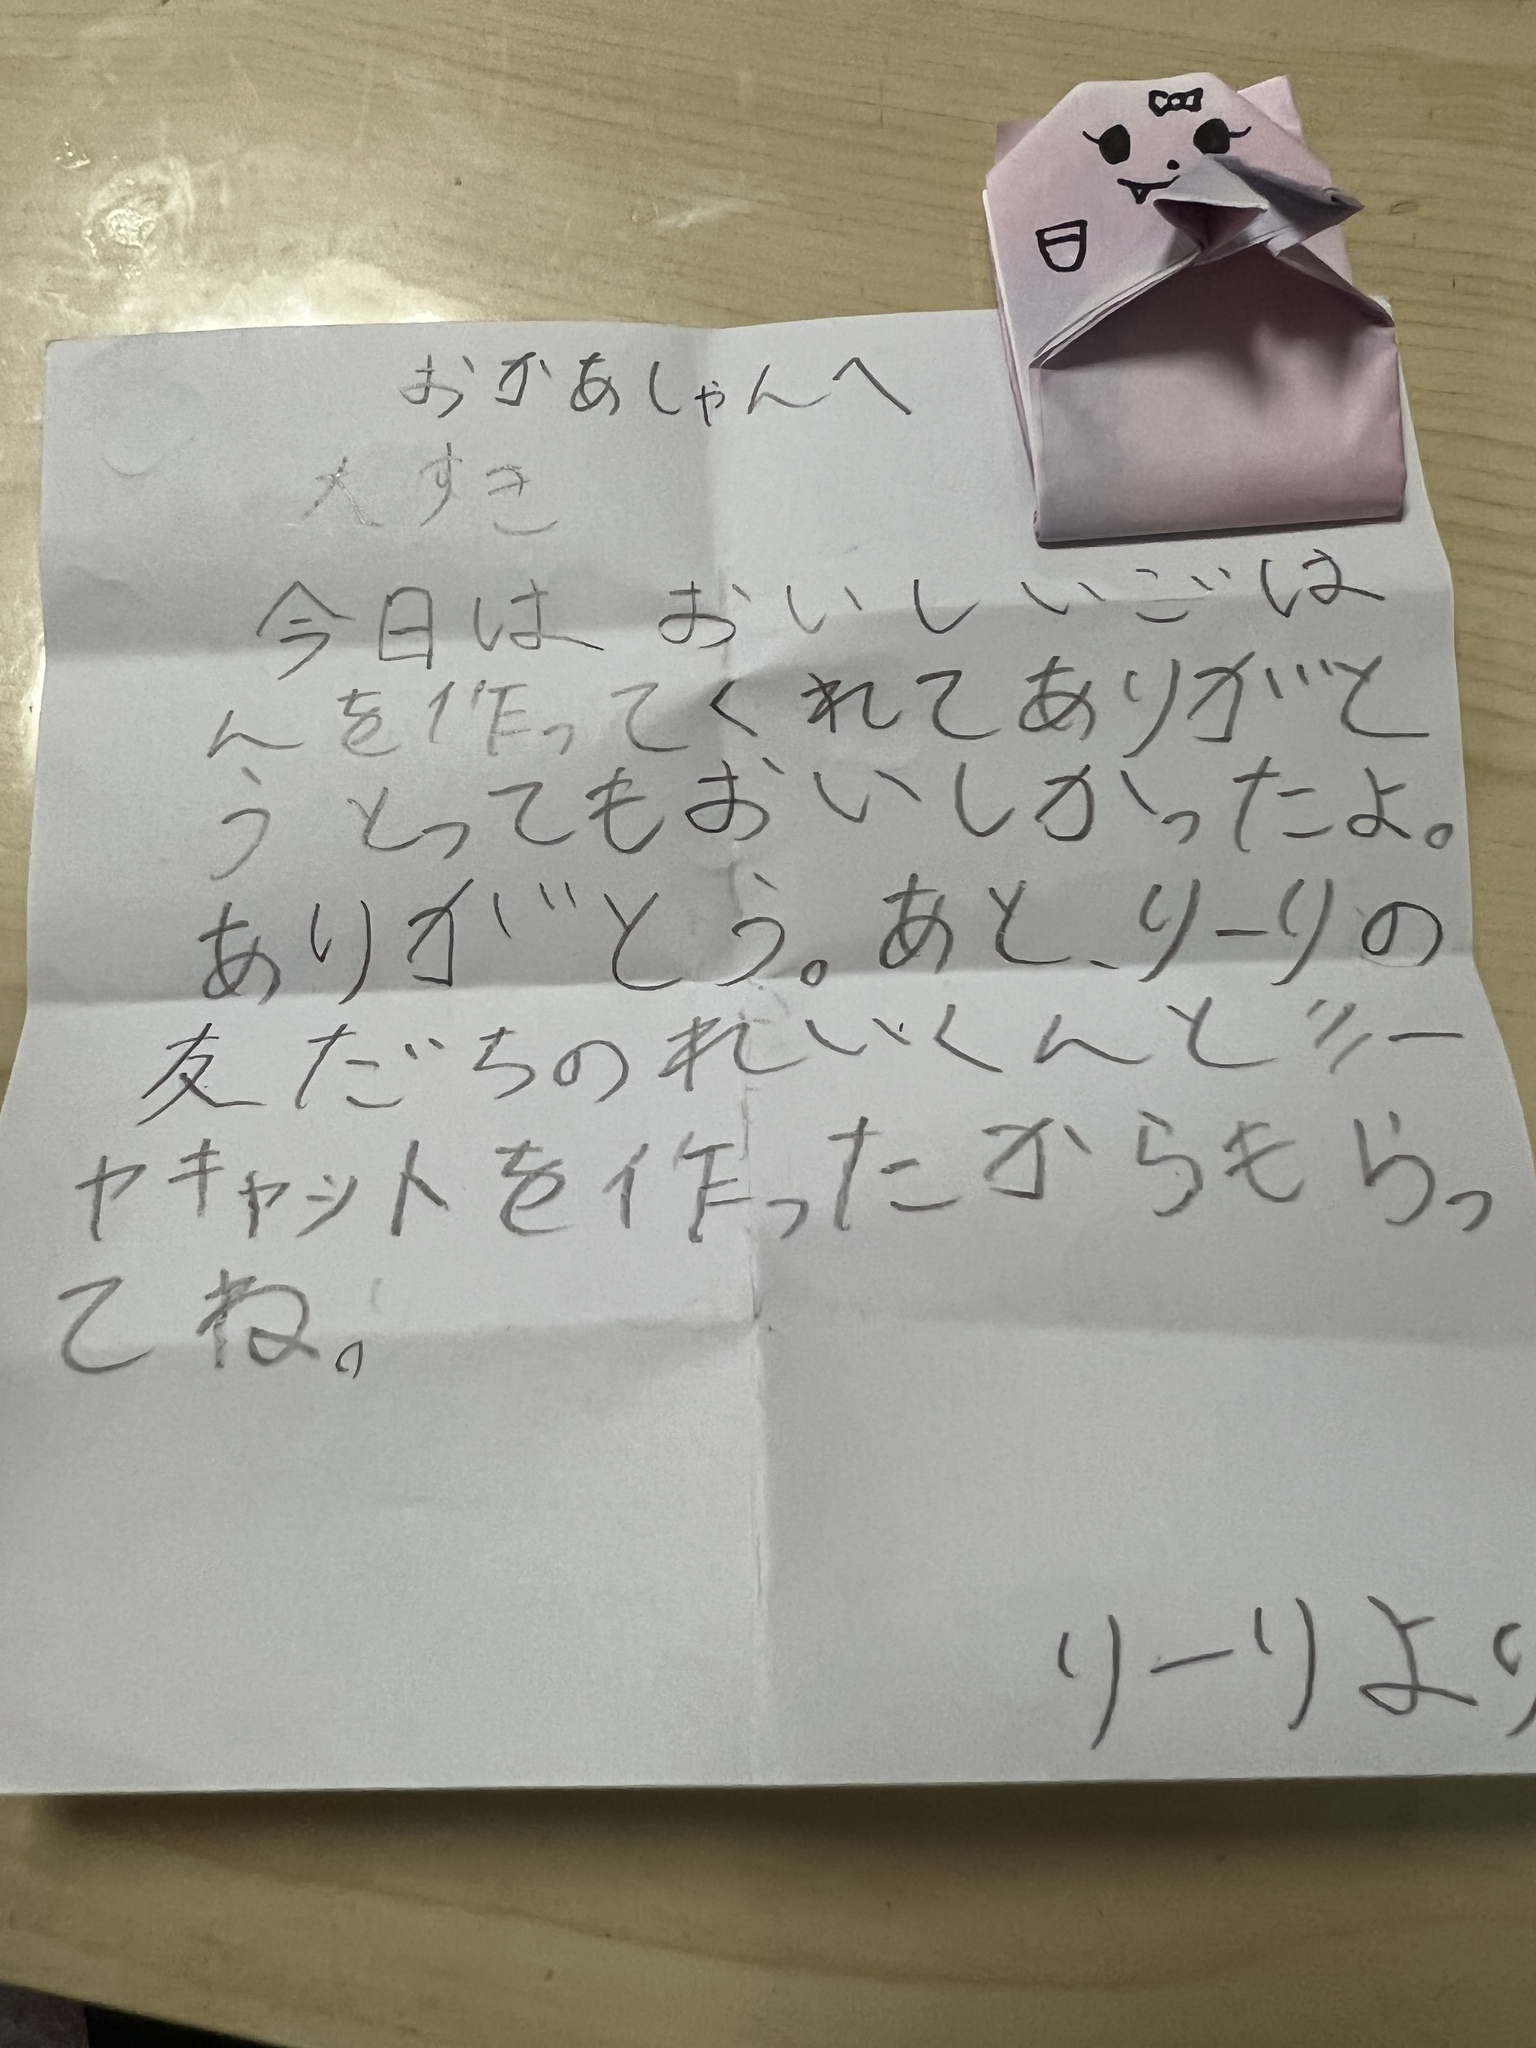 おかあしゃんへ
大すき
今日はおいしいごは
んを作ってくれてありがと
うとってもおいしかったよ。
ありがとう。あと、りーりの
友だちのれいくんとジー
ヤキャットを作ったからもらっ
てね。
りーりより